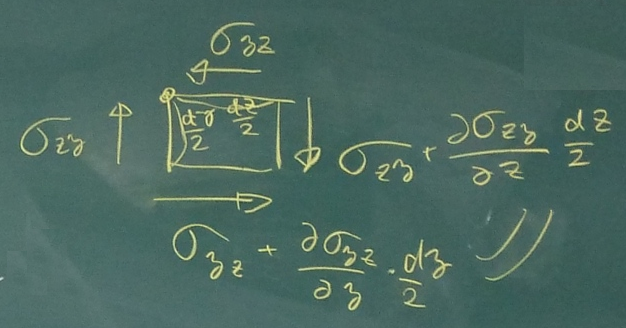 σ_{yz}
dy/2 dz/2
σ_{zy}
σ_{zy} + ∂σ_{zy}/∂z dz/2
σ_{yz} + ∂σ_{yz}/∂y · dy/2